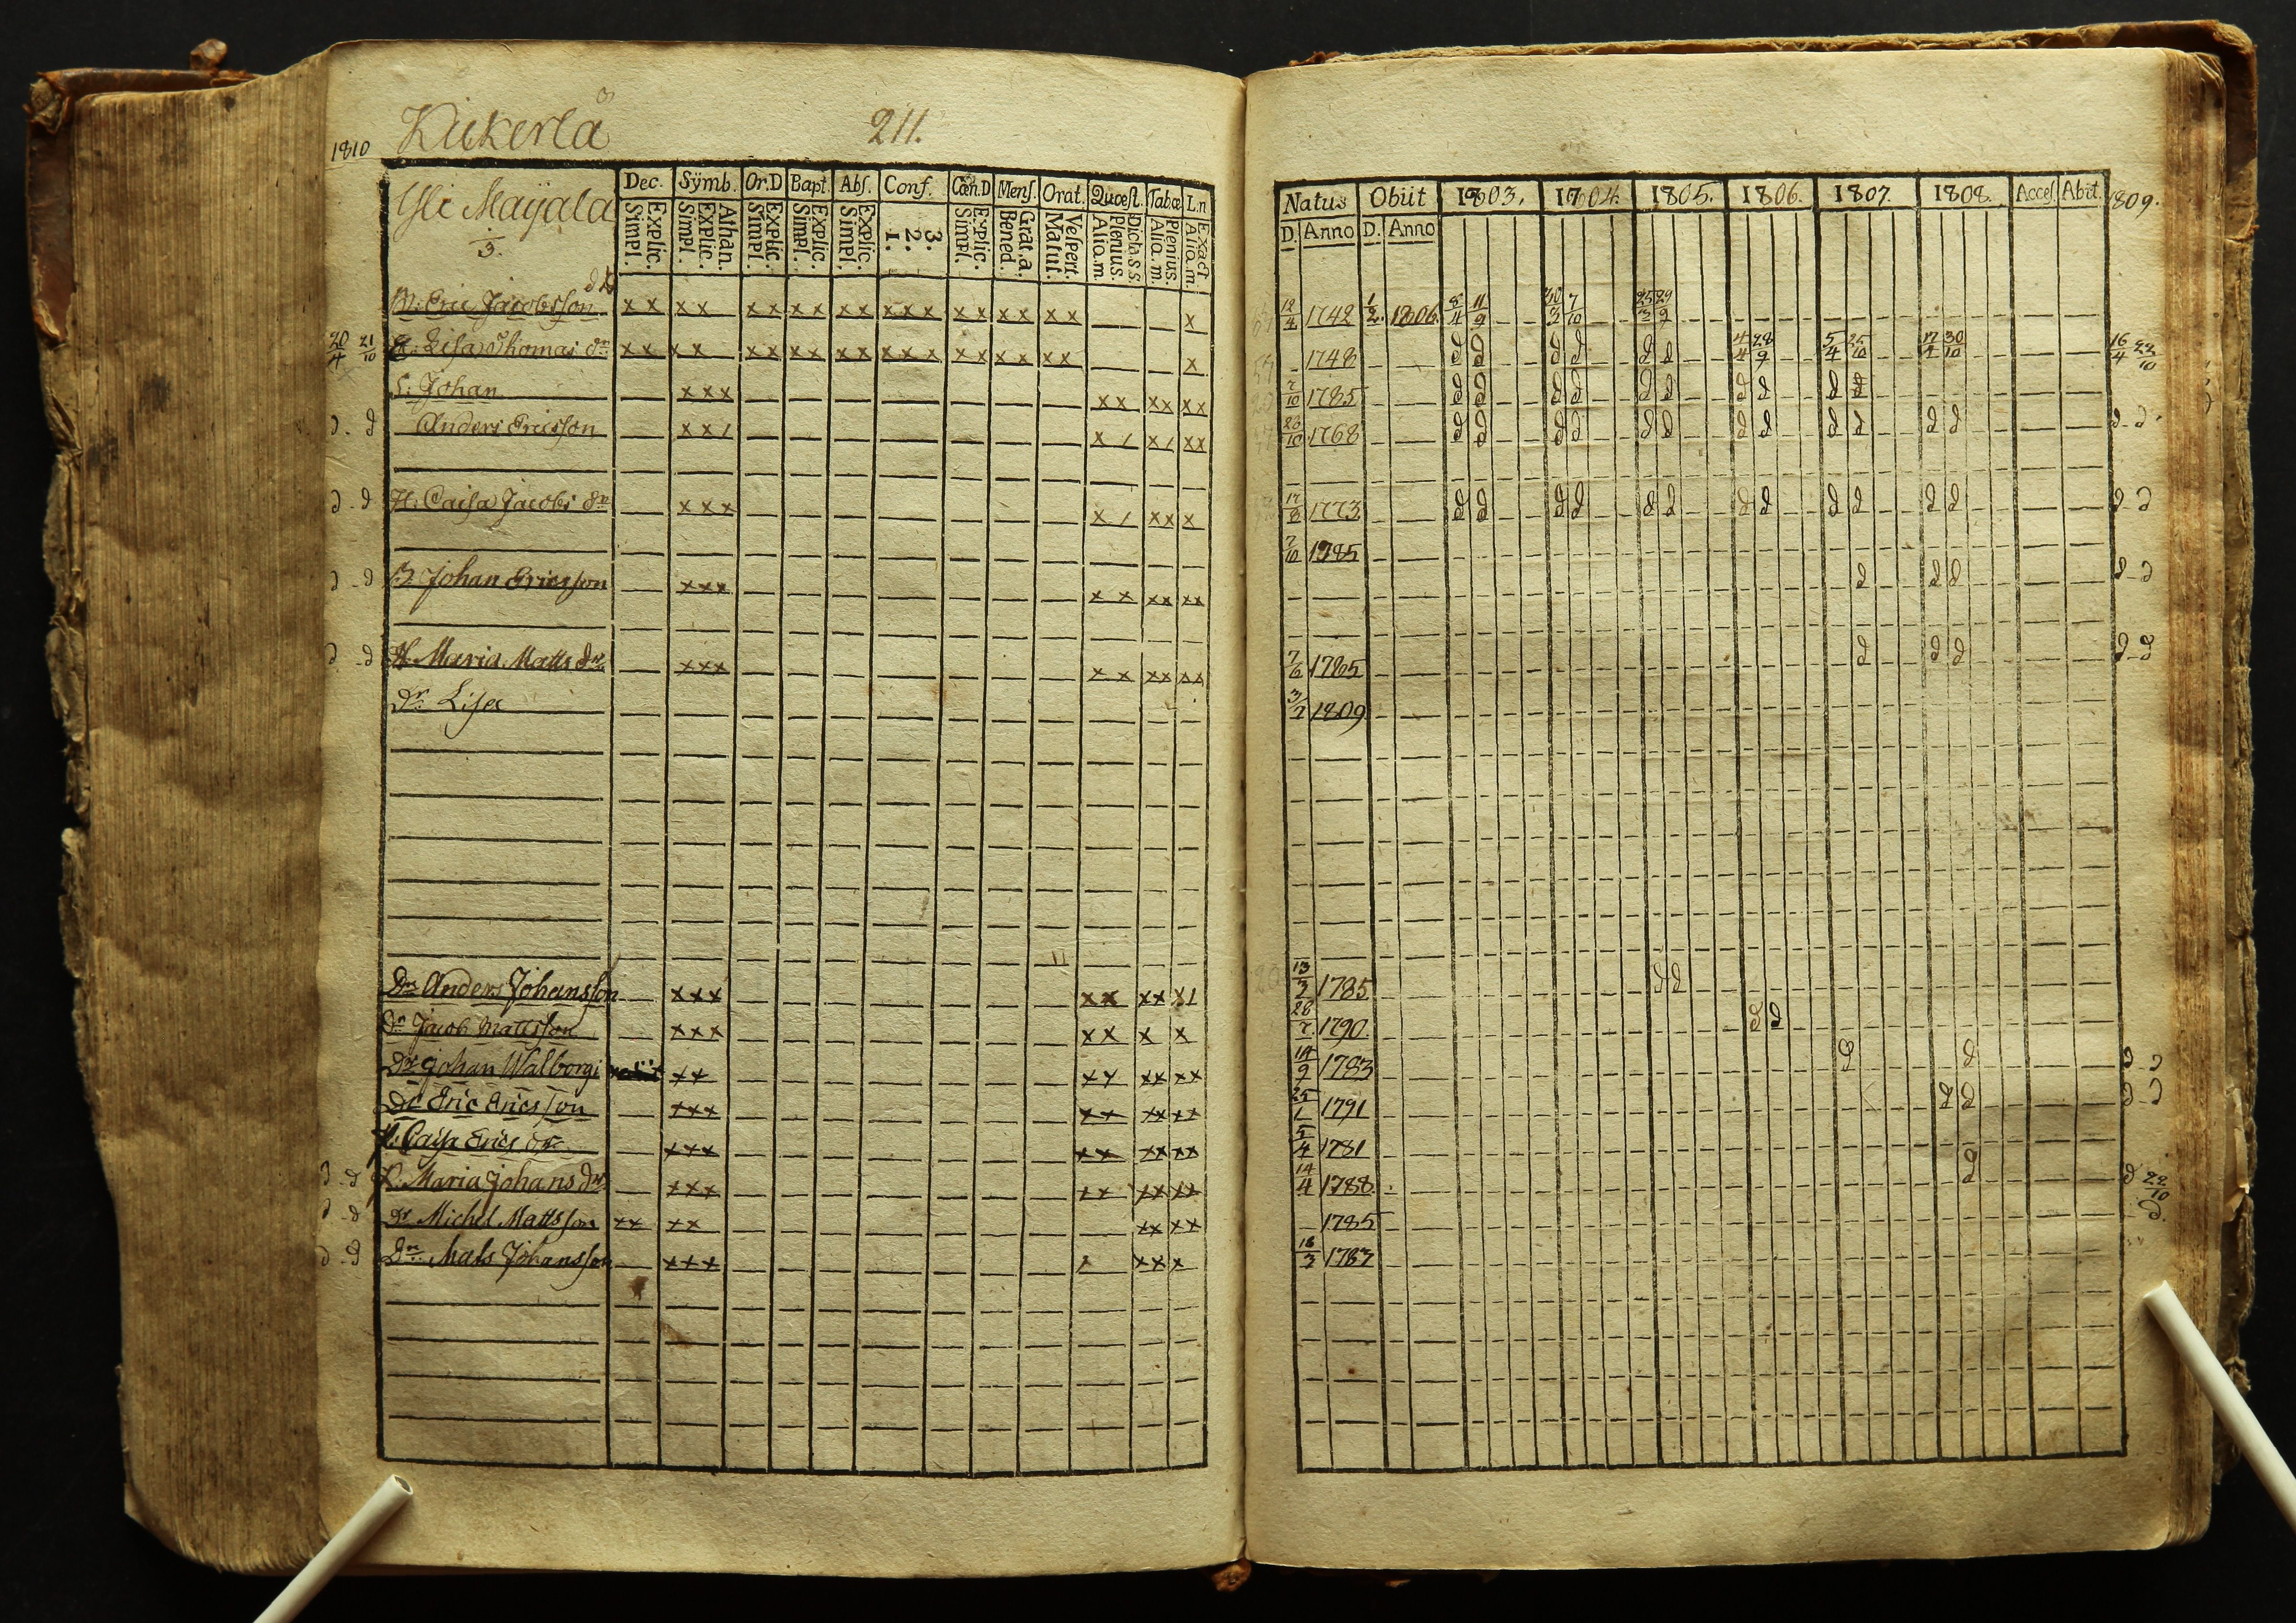 1810 Kickerlå 211.
Yli Maÿala
3.
Dec. Sÿmb. Or.D Bapt. Abſ. Conf. Cœn.D Menſ. Orat. Quœſt. Tabœ L.n
Explic. Simpl. Athan. Explic. Simpl. Explic. Simpl. Explic. Simpl. Explic. Simpl. 3. 2. 1. Explic. Simpl. Grat.a. Bened. Veſpert. Matut. Dicta s.s. Plenius. Alio.m. Plenius. Alio.m. Exact Alio.m.
M: Eric Jacobsſon x x x x x x x x x x x x x x x x x x x x
20/4 21/10 H: Lisa Thomas dr x x x x x x x x x x x x x x x x x x x x
S: Johan x x x x x x x x x
d - d Anders Ericsſon x x / x / x / x x
d - d H: Caisa Jacobs dr x x x x / x x x
d - d B. Johan Ericsſon x x x x x x x x x
d - d H. Maria Matts dr x x x x x x x x x
dr Lisa
Dr Anders Johansſon x x x x x x x x /
Dr Jacob Mattsſon x x x x x x x
Dr Johan Walborgi x x x x x x x x
Dr Eric Ericsſon x x x x x x x x x
H: Caisa Erics dr x x x x x x x x x
d - d P. Maria Johans dr x x x x x x x x x
d - d Dr Michel Mattsſon x x x x x x x x
d - d Dr Mats Johansſon x x x / x x x
Natus Obiit 1803. 1804. 1805. 1806. 1807. 1808. Acceſ. Abit. 1809.
D. Anno D. Anno
12/4 1742 1/2 1806 8/4 11/9 30/3 7/10 25/3 29/9
1748 d d d d d d 4/4 28/9 5/4 25/10 17/4 30/10 16/4 22/10
7/10 1785 d d d d d d d d d d
28/10 1768 d d d d d d d d d d d d d - d
17/8 1773 d d d d d d d d d d d d d d
7/10 1785
d d d d - d
7/6 1785 d d d d - d
3/2 1809
13/2 1785 d d
28/7 1790 d d
14/9 1783 d d d - d
25/1 1791 d d d - d
5/4 1781
14/4 1788 d d 22/10
1785 d.
18/3 1787